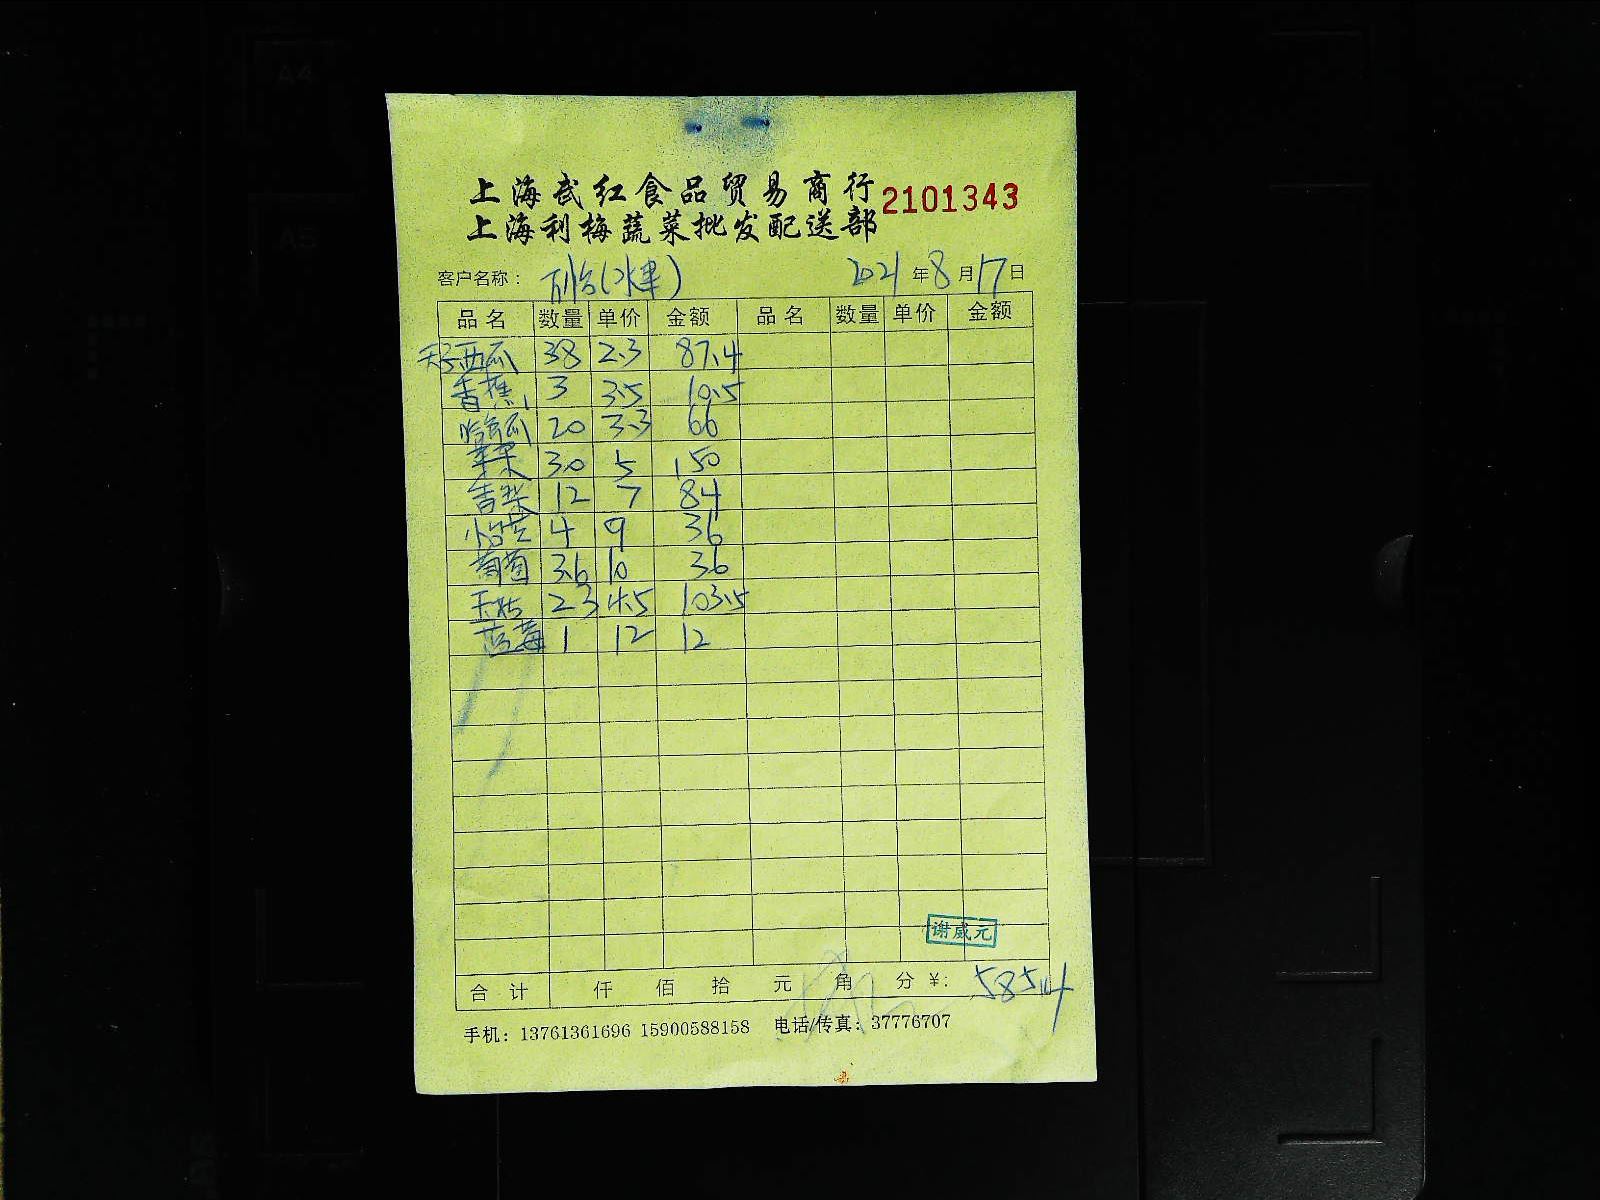 上海武红食品贸易商行 2101343
上海利梅蔬菜批发配送部
客户名称： 2021 年 8 月 17 日
品名 数量 单价 金额 品名 数量 单价 金额
西瓜 38 2.3 87.4
香蕉 3 3.5 10.5
哈密瓜 20 3.3 66
苹果 30 5 150
12 7 84
4 9 36
葡萄 3.6 10 36
23 4.5 103.5
蓝莓 1 12 12
谢威元
合计 仟 佰 拾 元 角 分 ¥: 585.4
手机：13761361696 15900588158 电话/传真：37776707